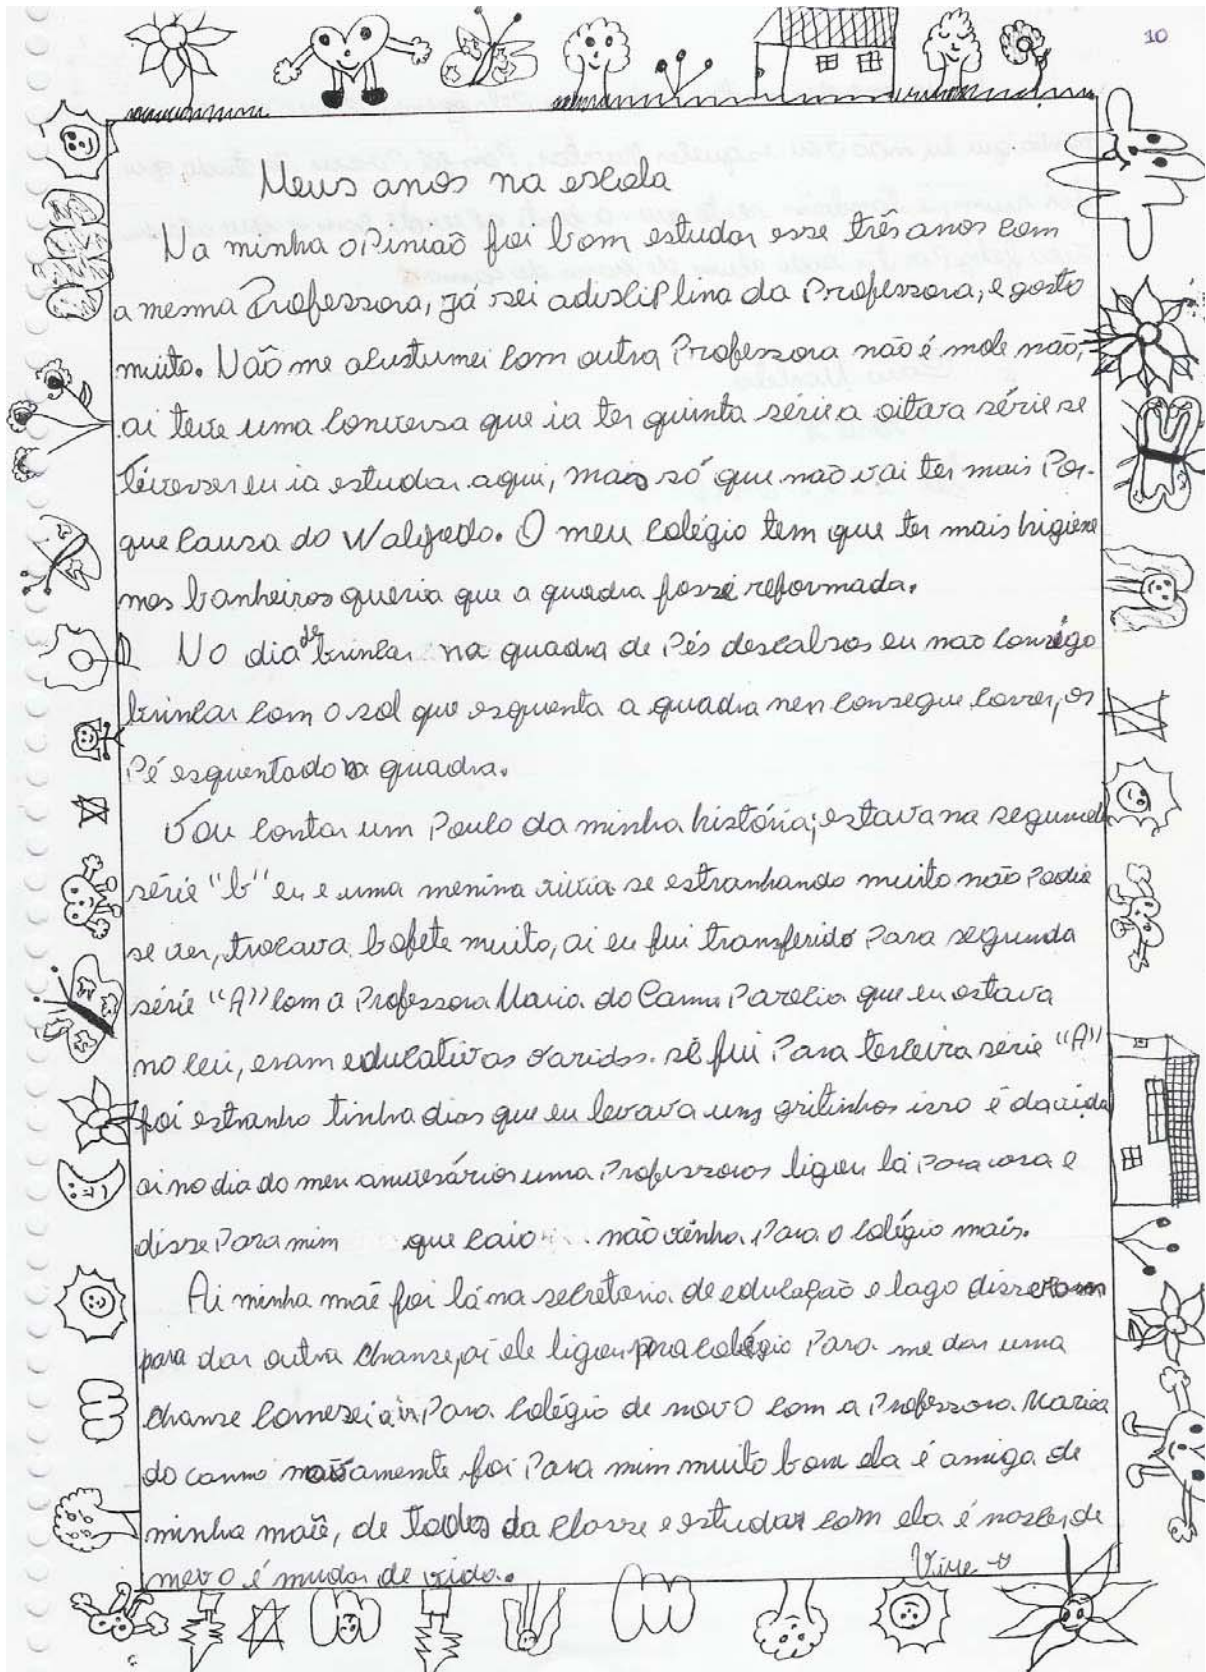 10
Meus anos na escola
Na minha oPinião foi bom estudar esse três anos com
a mesma Professora, já sei a disciPlina da Professora, e gosto
muito. Não me acustumei com outra Professora não é mole não,
ai teve uma conversa que ia ter quinta série a oitava série se
tivesse eu ia estudar aqui, mais só que não vai ter mais Por-
que causa do Walfredo. O meu colégio tem que ter mais higiene
nos banheiros queria que a quadra fosse reformada.
No dia de brincar na quadra de Pés descalsos eu nao consigo
brincar com o sol que esquenta a quadra nen consegue correr, os
Pé esquentado na quadra.
Vou contar um Pouco da minha história; estava na segunda
série "b" eu e uma menina vivia se estranhando muito não Podia
se ver, trocava bofete muito, ai eu fui transferido Para segunda
série "A" com a Professora Maria do Carmo Parecia que eu estava
no ceu, eram educativas
só fui Para terceira série "A"
foi estranho tinha dias que eu levava uns gritinhos isso é da vida
ai no dia do meu aniversários uma Professoras ligou lá Para casa e
disse Para mim que caio não vinha Para o colégio mais.
Ai minha mãe foi lá na secretaria de educação e lago disseram
para dar outra chanse, ai ele ligou pra colégio Para me dar uma
chanse comesei a ir Para colégio de novo com a Professora Maria
do carmo novamente foi Para mim muito bom ela é amiga de
minha mãe, de todos da classe e estudar com ela é nascer de
novo é mudar de vida.
Vire